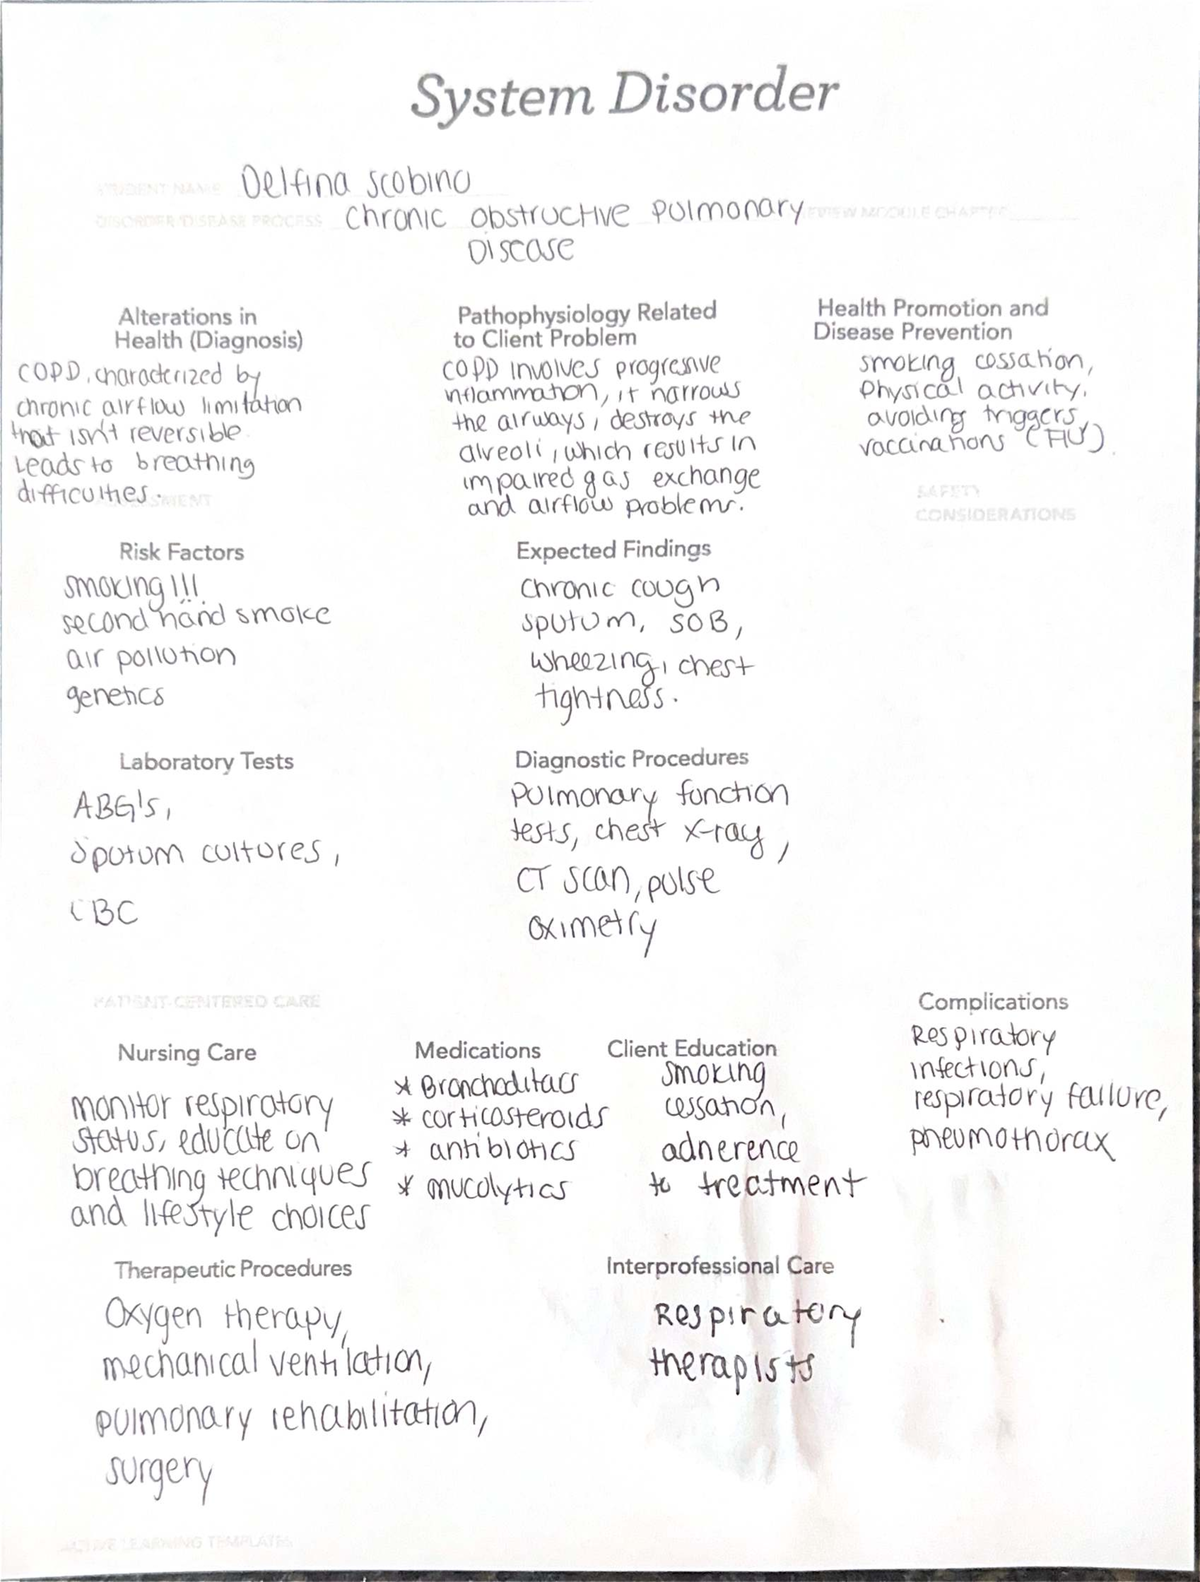 System Disorder
STUDENT NAME Delfina scobino
DISORDER/DISEASE PROCESS chronic obstructive pulmonary REVIEW MODULE CHAPTER
Disease
Alterations in
Health (Diagnosis)
COPD, characterized by
chronic airflow limitation
that isn't reversible.
Leads to breathing
difficulties.
Pathophysiology Related
to Client Problem
COPD involves progressive
inflammation, it narrows
the airways, destroys the
alveoli, which results in
impaired gas exchange
and airflow problems.
Health Promotion and
Disease Prevention
smoking cessation,
Physical activity,
avoiding triggers,
vaccinations (FIU).
ASSESSMENT
SAFETY
CONSIDERATIONS
Risk Factors
smoking!!!
second hand smoke
air pollution
genetics
Expected Findings
chronic cough
sputum, SOB,
wheezing, chest
tightness.
Laboratory Tests
ABG's,
Sputum cultures,
CBC
Diagnostic Procedures
Pulmonary function
tests, chest x-ray,
CT scan, pulse
oximetry
PATIENT-CENTERED CARE
Nursing Care
monitor respiratory
status, educate on
breathing techniques
and lifestyle choices
Medications
* Bronchoditacs
* corticosteroids
* antibiotics
* mucolytics
Client Education
smoking
cessation,
adherence
to treatment
Complications
Respiratory
infections,
respiratory failure,
pneumothorax
Therapeutic Procedures
Oxygen therapy,
mechanical ventilation,
pulmonary rehabilitation,
surgery
Interprofessional Care
Respiratory
therapists
ACTIVE LEARNING TEMPLATES